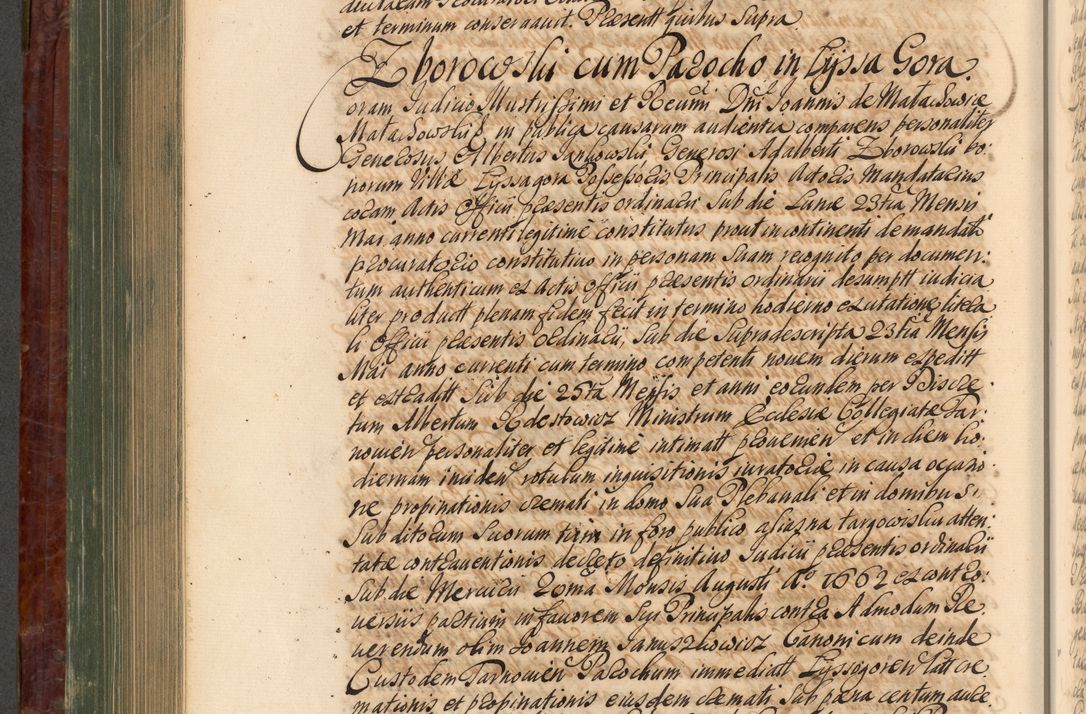 et terminum conservavit. Præsentt quibus Supra.
Zborowski cum Parocho in Lyssa Gora.
Coram Judicio Illustrissimi et Reverendi Dni Joannis de Małachowice
Małachowski, in publica causarum audientia comparens personaliter
Generosus Albertus Jankowski, Generosi Adalberti Zborowski bo
norum Villæ Lyssagora Possessoris Principalis Actoris Mandatarius
coram Actis Officii præsentis ordinarii Sub die Lunæ 23tia Mensis
Mai anno currenti legitime constitutus prout in continenti de mandati
procuratorio constitutivo in personam Suam recognito per documen:
tum authenticum ex Actis Officii præsentis ordinarii desumptt iudicia
liter productt plenam fidem fecit in termino hodierno ex citatione litera
li Officii præsentis ordinarii, Sub die Supradescripta 23tia Mensis
Mai anno currenti cum termino competenti novem dierum expeditt
et extraditt Sub die 25ta Mensis et anni eorundem per Discre
tum Albertum Ministrum Ecclesiæ Collegiatæ Tar:
novien personaliter et legitime intimatt provenien et in diem ho:
diernam inciden rotulum inquisitionis iuratoriæ in causa occasio
ne propinationis cremati in domo Sua Plebanali et in domibus
Subditorum Suorum tum in foro publico alias na targowisku atten
tatæ contraventionis decreto definitivo Judicii præsentis ordinarii
Sub die Mercurii 2da Mensis Augusti Ao 1662 ex contro:
versiis partium in favorem Sui Principalis contra Admodum Re
verendum olim Joannem Januszkowicz Canonicum deinde
Custodem Tarnovien Parochum immediatt Lyssogoren latt cre
mationis et propinationis eiusdem cremati Sub pæna centum